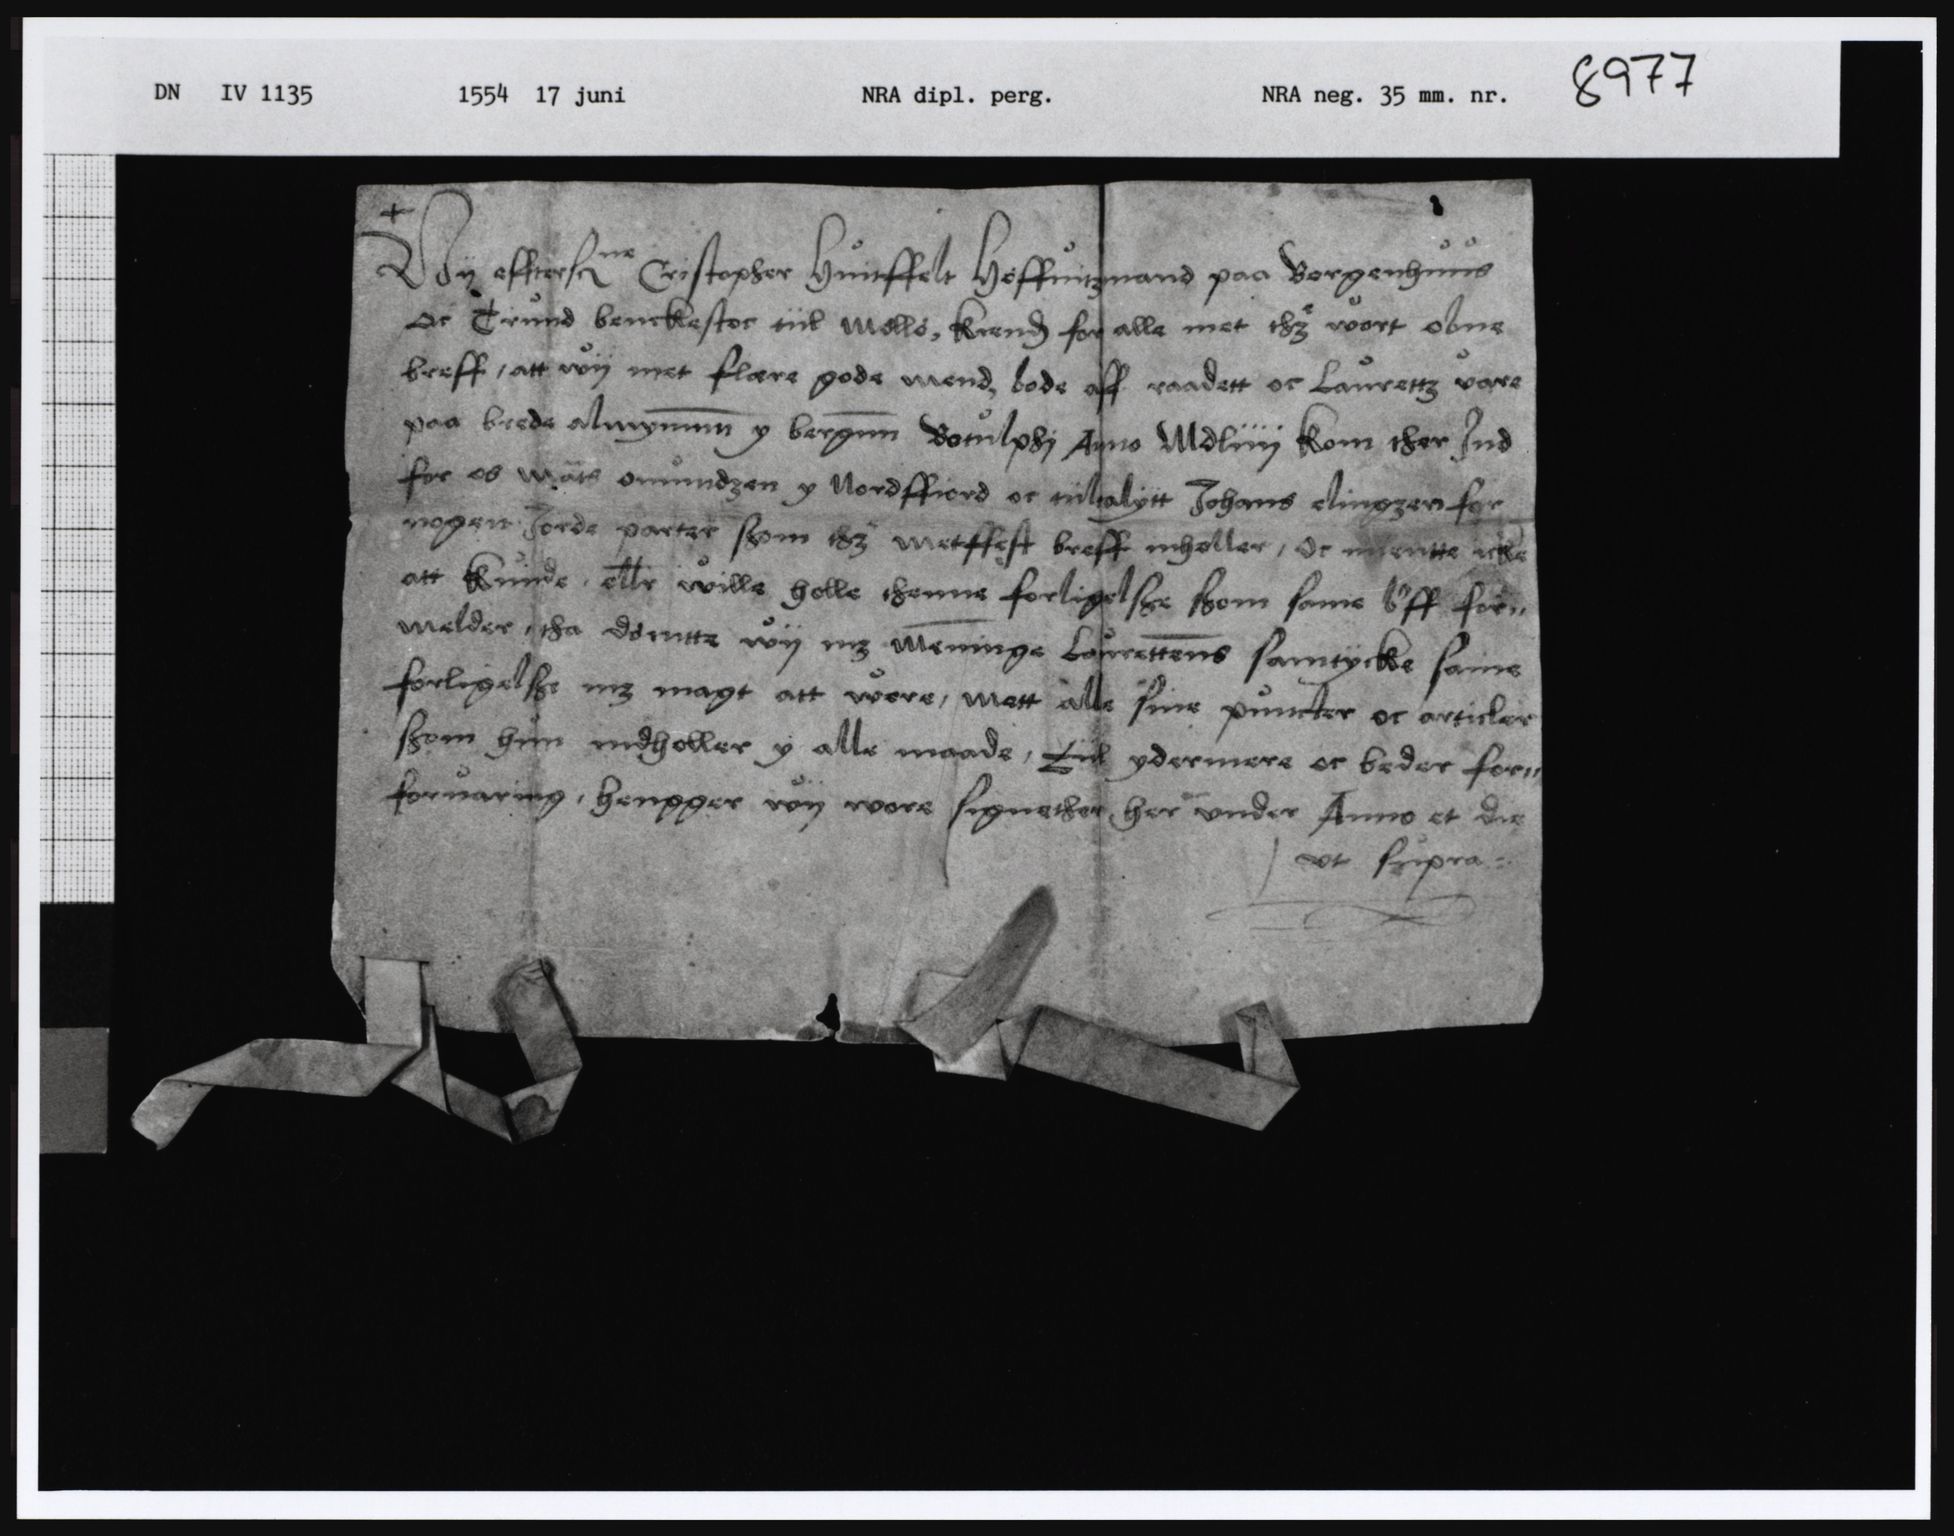 DN IV 1135 1554 17 juni NRA dipl. perg. NRA neg. 35 mm. nr. 8977
Wij effterscne Cristopher Huitffelt Høffuitzmand paa Bergenhuus
oc Trund benckestoc tiil Mellø, kiend for alle met thz wort obne
breff, att wij met flere gode mend, bode aff raadett oc Laurettz vare
paa brede almynnni y bergnn Botulphj Anno Mdliiij kom ther Ind
for os mats omundzen y Nordffiord oc tiiltalytt Johans elingzen for
nogen Jorde parter som thz metffest breff inholler, oc mentte icke
att kunde ellr wille holle thenne forligelsze szom same b'ff for"
melder, tha dömtte wij mz Meninge Laurettens samtycke same
forligelsze mz magt att were, mett alle sine puncter oc articler
szom hun indholler y alle maade, Tiil ydermere oc beder for"
foruaring, hengger wij wore signether her under Anno et die
vt supra